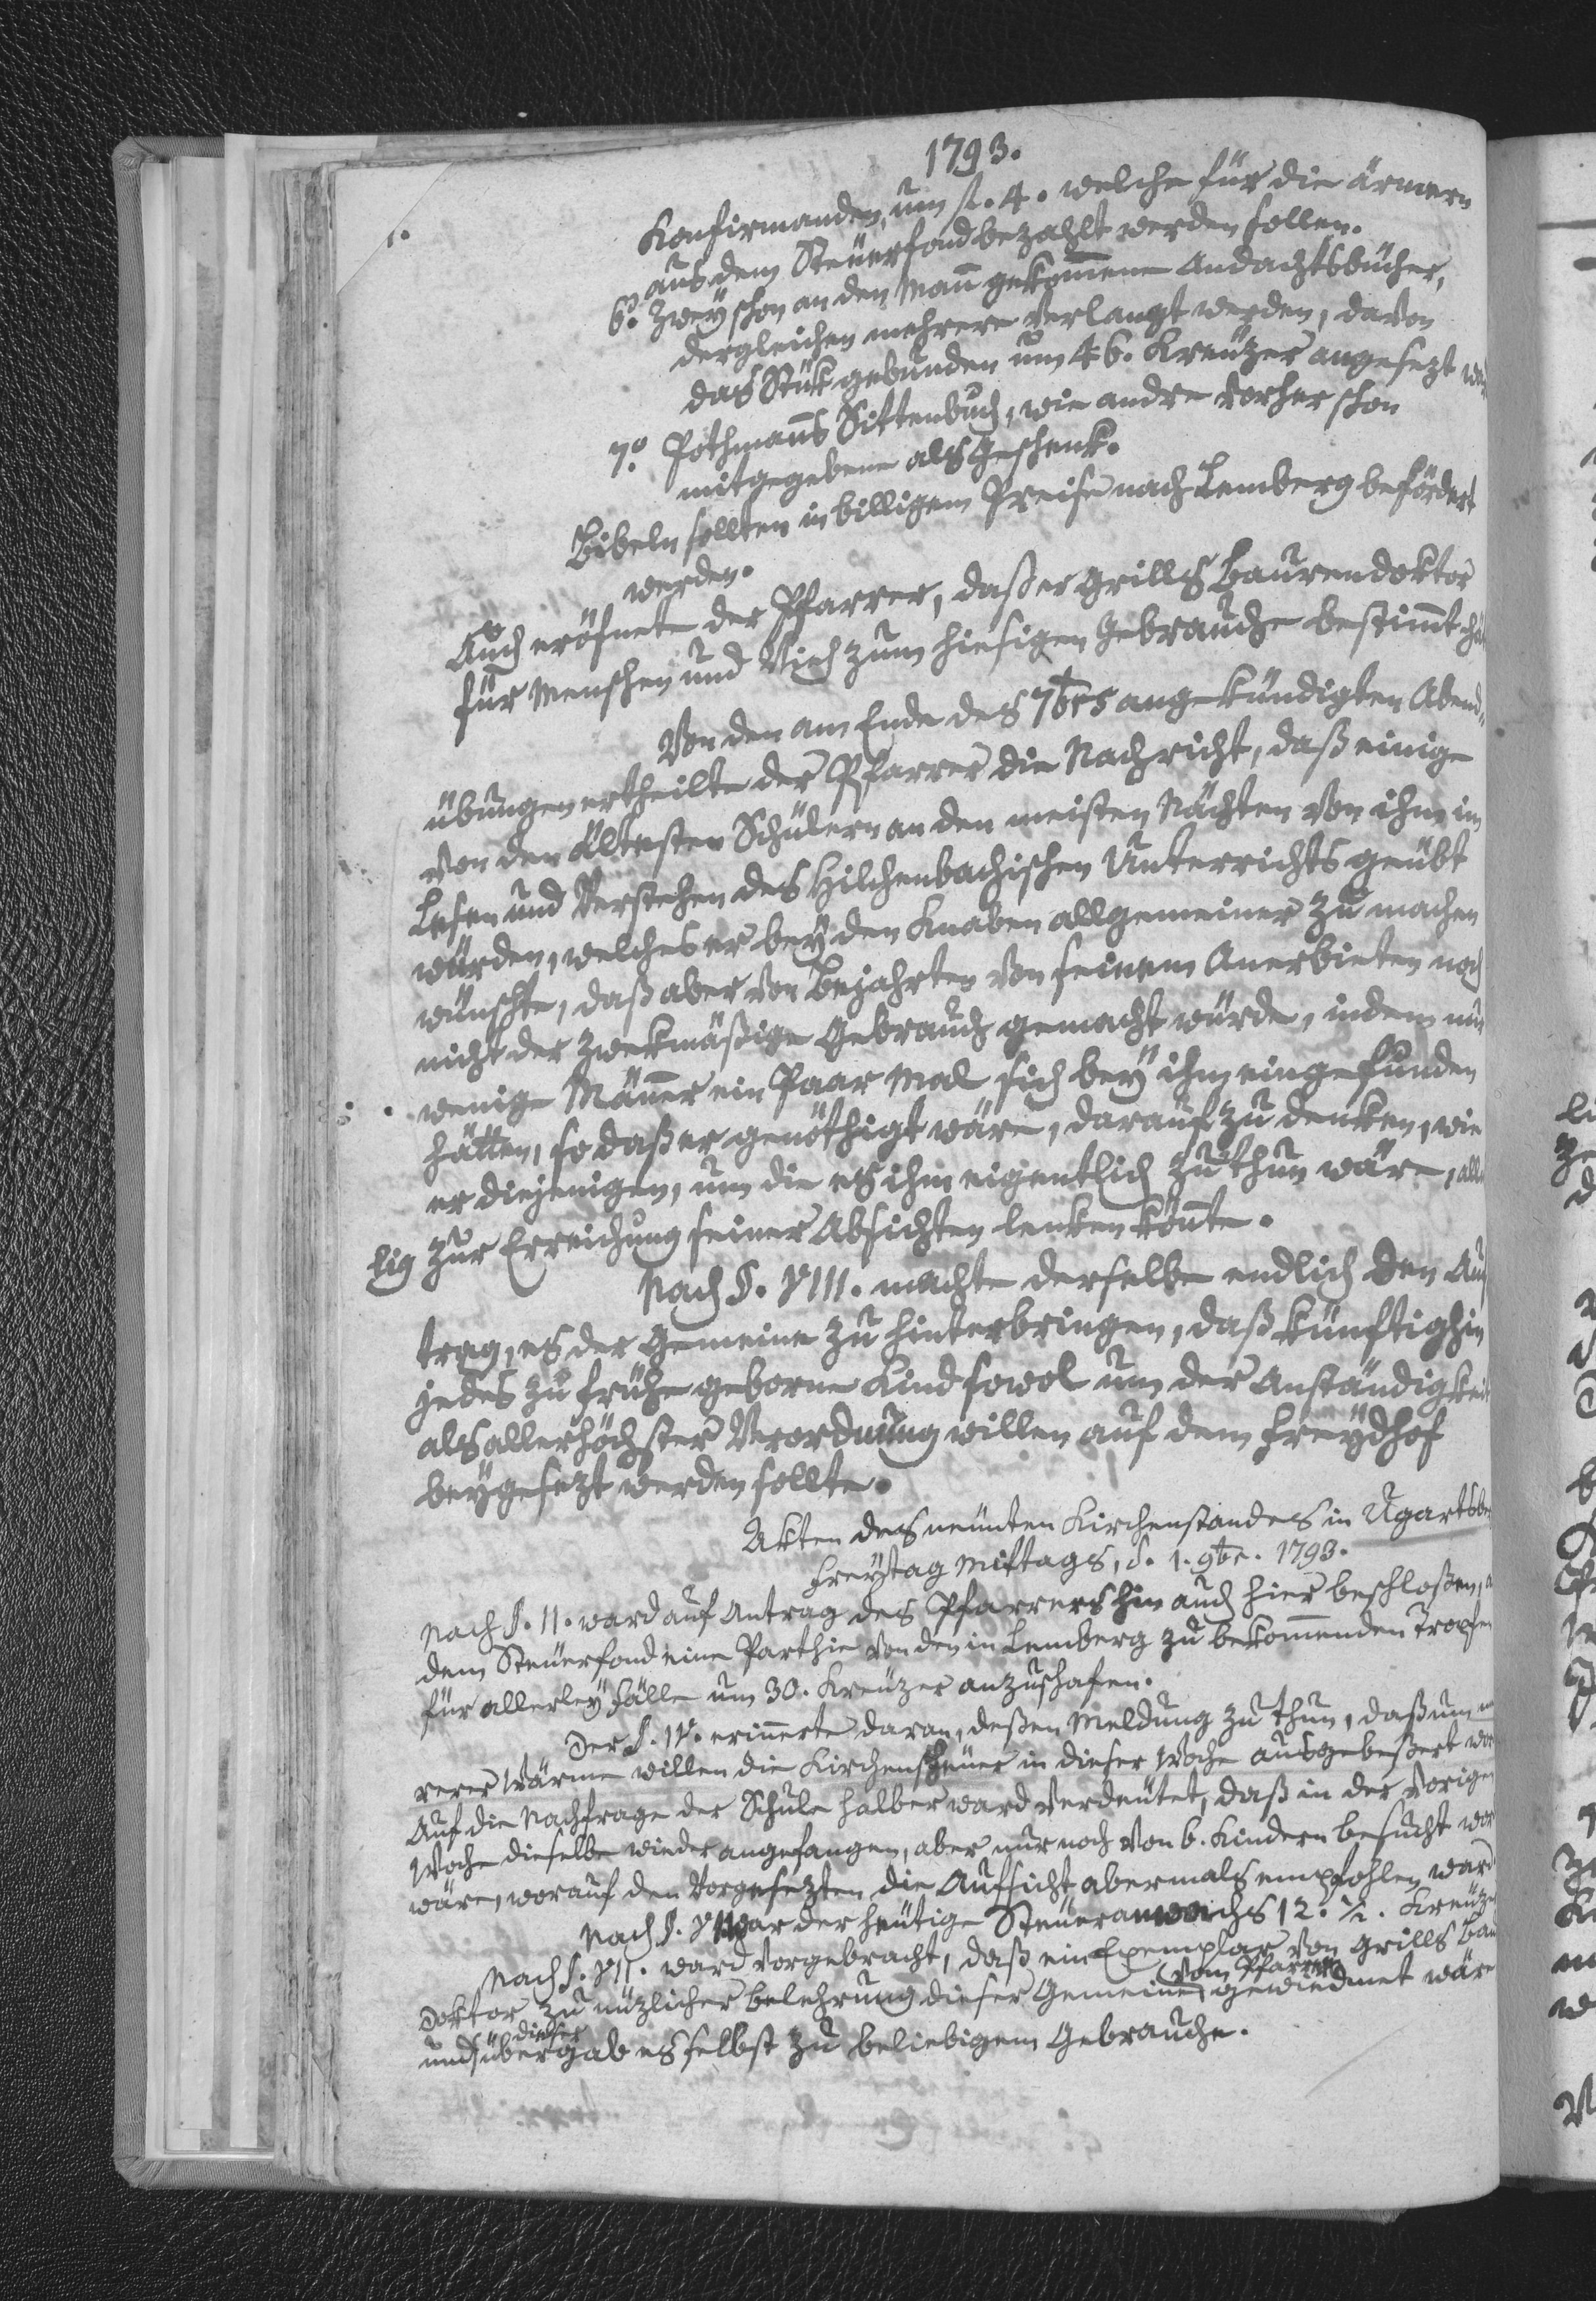 1793.
Konfirmanden, um fl. 4. welche für die ärmern
aus dem Steuerfond bezahlt werden sollen.
6.° Zwey schon an den Mañ gekom̃ene Andachtsbücher,
dergleichen mehrere verlangt werden, davon
das Stük gebunden um 46. Kreuzer angesezt
7.° Pothmañs Sittenbuch, wie andre vorher schon
mitgegebene als Geschenk.
Bibeln sollten in billigem Preise nach Lemberg befördert
werden.
Auch eröfnete der Pfarrer, daß er Grills Baurendoktor
für Menschen und Vieh zum hiesigen Gebrauche bestim̃t
Von den am Ende des 7brs angekündigten Abend„
übungen ertheilte der Pfarrer die Nachricht, daß einige
von den ältesten Schülern an den meisten Nächten von ihm im
Lesen und Verstehen des Hilchenbachischen Unterrichts geübt
würden, welches er bey den Knaben allgemeiner zu machen
wünschte, daß aber von Bejahrten von seinem Anerbieten noch
nicht der zwekmäßige Gebrauch gemacht würde, indem nur
wenige Mäñer ein Paar Mal sich bey ihm eingefunden
hätten, so daß er genöthigt wäre, darauf zu denken, wie
er diejenigen, um die es ihm eigentlich zu thun wäre,
lig zur Erreichung seiner Absichten lenken köñte.
Nach §. VIII. machte derselbe endlich den Auf
trag, es der Gemeine zu hinterbringen, daß künftighin
jedes zu frühe geborne Kind sowol um der Anständigkeit
als allerhöchster Verordnung willen auf dem Freydhof
beygesezt werden sollte.
Akten des neunten Kirchenstandes in Ugartsb
Freytag Mittags, d. 1. 9br. 1793.
Nach §. II. ward auf Antrag des Pfarrers hin auch hier beschloßen,
dem Steuerfond eine Parthie von den in Lemberg zu bekom̃enden Tropfen
für allerley Fälle um 30. Kreuzer anzuschafen.
Der §. IV. eriñerte daran, deßen Meldung zu thun, daß um
rerer Wärme willen die Kirchenscheuer in dieser Woche ausgebeßert
Auf die Nachfrage der Schule halber ward verdeutet, daß in der vorigen
Woche dieselbe wieder angefangen, aber nur noch von 6. Kindern besucht
wäre, worauf den Vorgesezten die Aufsicht abermals empfohlen ward
Nach §. VI war der heutige Steueranwachs 12. ½. Kreuzer
Nach §. VII. ward vorgebracht, daß ein Exemplar von Grills
Doktor zu nüzlicher Belehrung dieser Gemeine vom Pfarrer gewiedmet wäre
und dieser übergab es selbst zu beliebigem Gebrauche.